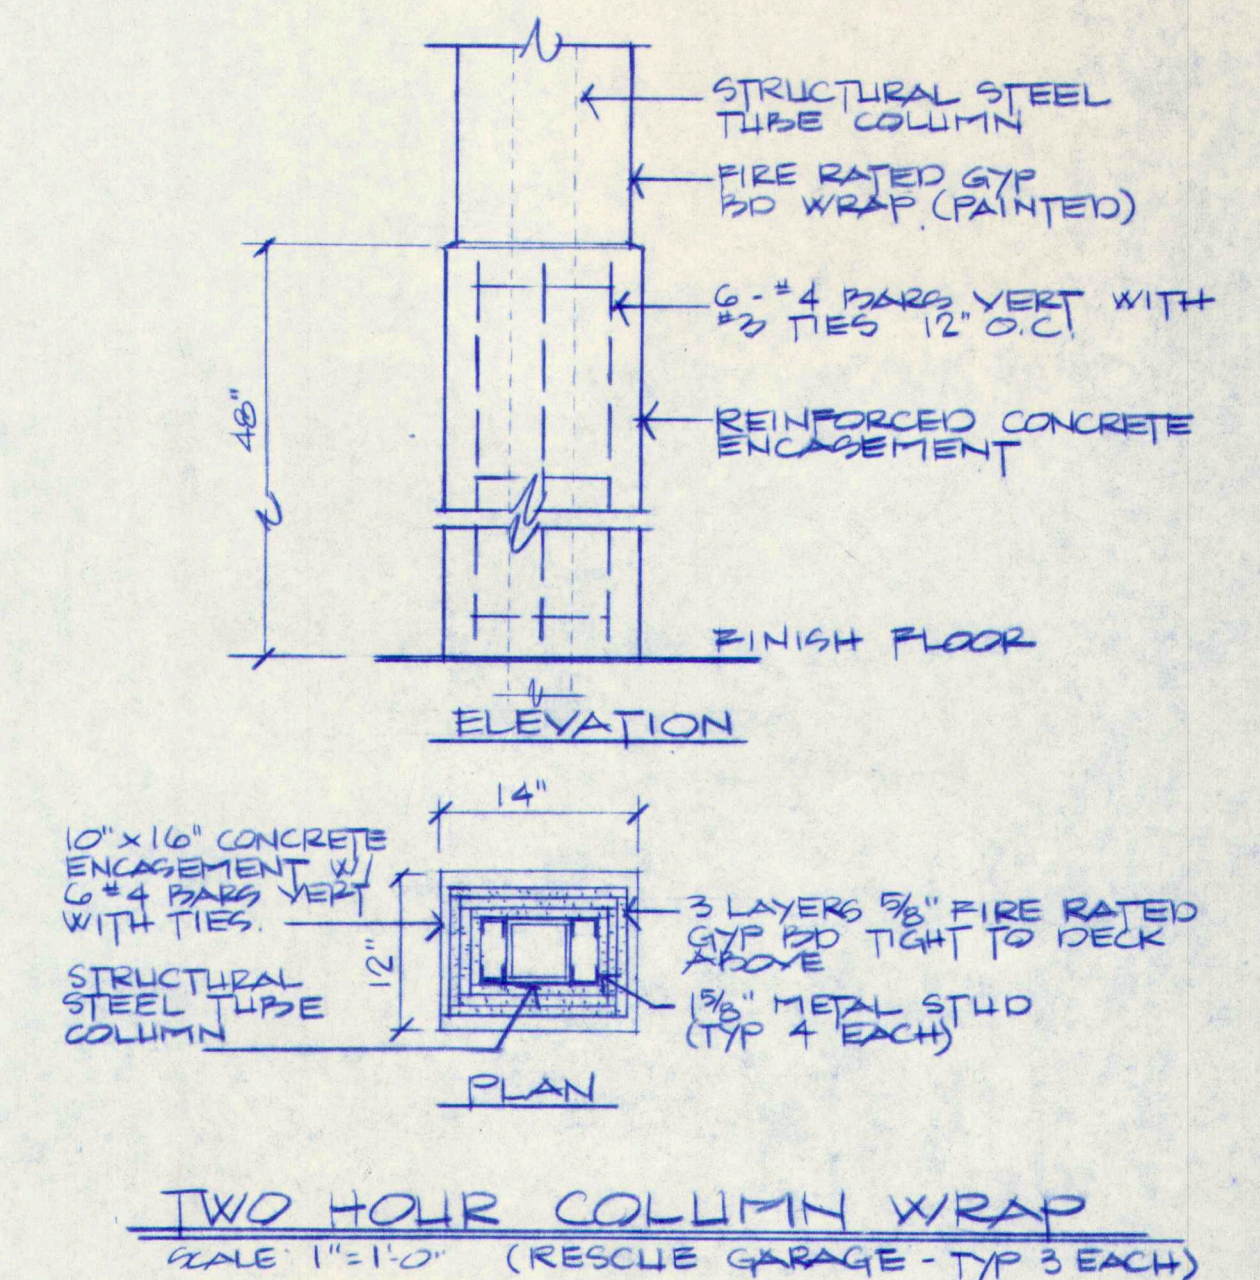 STRUCTURAL STEEL
TUBE COLUMN
FIRE RATED GYP
BD WRAP (PAINTED)
6 - #4 BARS VERT WITH
#3 TIES 12" O.C.
48"
REINFORCED CONCRETE
ENCASEMENT
FINISH FLOOR
ELEVATION
14"
10" x 16" CONCRETE
ENCASEMENT W/
6 #4 BARS VERT
WITH TIES.
12"
STRUCTURAL
STEEL TUBE
COLUMN
3 LAYERS 5/8" FIRE RATED
GYP BD TIGHT TO DECK
ABOVE
1 5/8" METAL STUD
(TYP 4 EACH)
PLAN
TWO HOUR COLUMN WRAP
SCALE: 1"=1'-0" (RESCUE GARAGE - TYP 3 EACH)